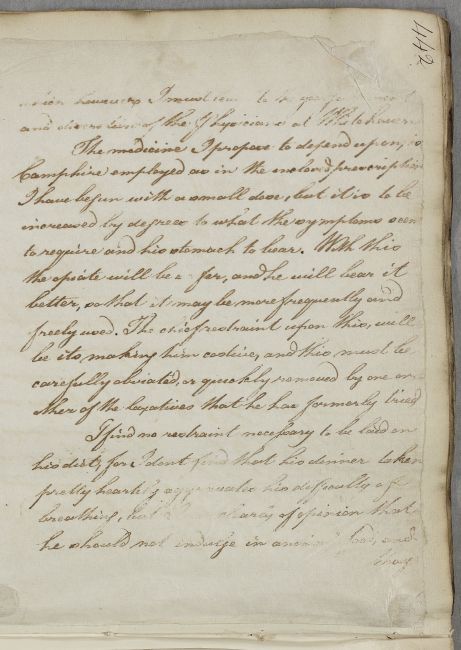 442
which however I must to the
and discretion of the Physicians at Whitehaven
The medicine I propose to depend upon, is
Camphire employed as in the enclosed prescription
I have begun with a small dose, but it is to be
increased by degrees to what the symptoms seem
to require and his stomach to bear. With this
the opiate will be safer, and he will bear it
better, so that it may be more frequently and
freely used. The chief restraint upon this, will
be its making him costive, and this must be
carefully obviated, or quickly removed by one or
other of the laxatives that he has formerly tried
I find no restraint necessary to be laid on
his diet, for I dont find that his dinner taken
pretty heartily aggravates his difficulty of
breathing, but I clearly of opinion that
he should not indulge in animal food, and